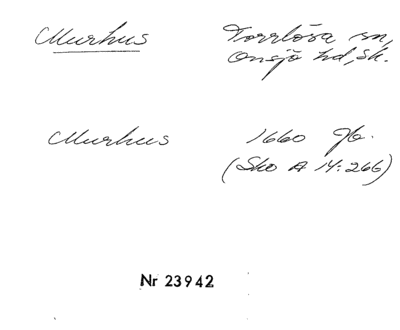 Murhus Torrlösa sn,
Onsjö hd, Sk.
Murhus 1660 Jb.
(Sko A 14:266)
Nr 23942